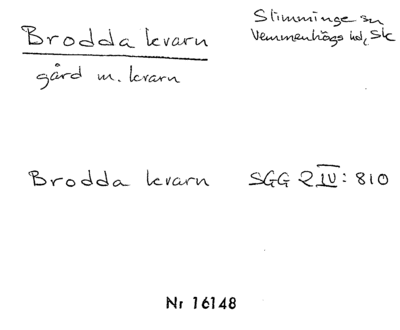 Brodda kvarn
gård m. kvarn
Slimminge sn
Vemmenhögs hd, Sk
Brodda kvarn SGG 2 IV: 810
Nr 16148